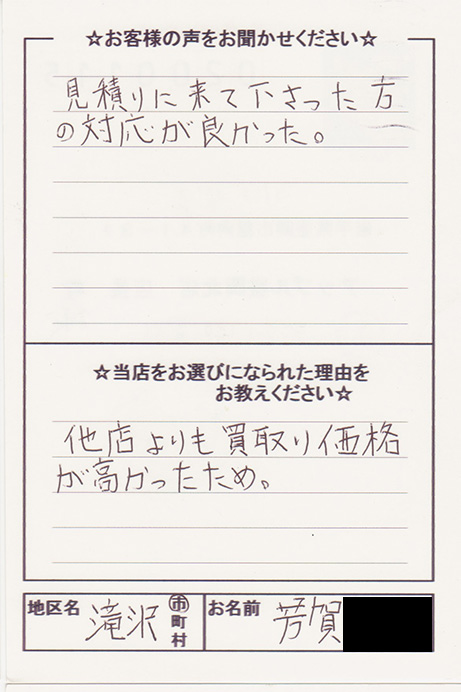 ☆お客様の声をお聞かせください☆
見積りに来て下さった方
の対応が良かった。
☆当店をお選びになられた理由を
お教えください☆
他店よりも買取り価格
が高かったため。
地区名 滝沢 市町村 お名前 芳賀